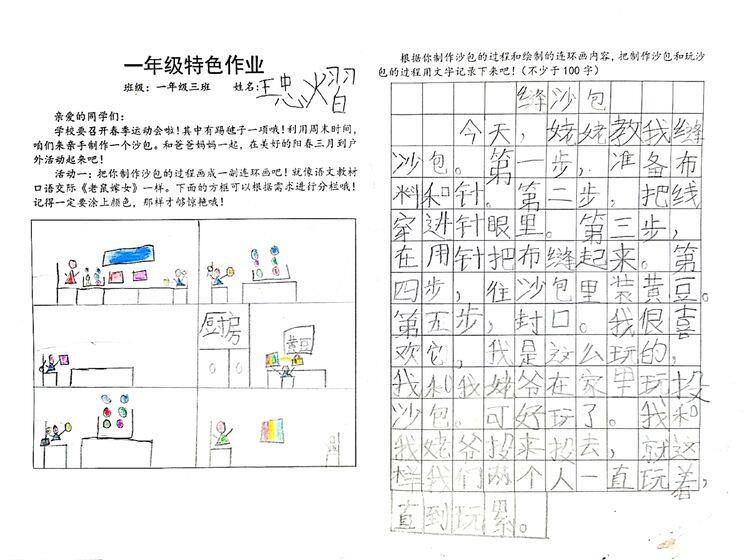 一年级特色作业
班级：一年级三班 姓名：
亲爱的同学们：
学校要召开春季运动会啦！其中有踢毽子一项哦！利用周末时间，
咱们来亲手制作一个沙包。和爸爸妈妈一起，在美好的阳春三月到户
外活动起来吧！
活动一：把你制作沙包的过程画成一副连环画吧！就像语文教材
口语交际《老鼠嫁女》一样。下面的方框可以根据需求进行分栏哦！
记得一定要涂上颜色，那样才够惊艳哦！
厨房
黄豆
根据你制作沙包的过程和绘制的连环画内容，把制作沙包和玩沙
包的过程用文字记录下来吧！（不少于100字）
缝沙包
今天，姥姥教我缝
沙包。第一步，准备布
料和针。第二步，把线
穿进针眼里。第三步，
在用针把布缝起来。第
四步，往沙包里装黄豆。
第五步，封口。我很喜
欢它，我是这么玩的，
我和我姥爷在家里玩投
沙包。可好玩了。我和
我姥爷投来投去，就这
样我们两个人一直玩着，
直到玩累。